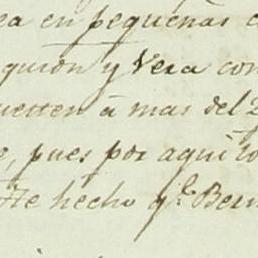 ea en pequeñas c
guion y Vera con
uesten á mas del 2
e, pues por aqui to
He hecho q.e Bern